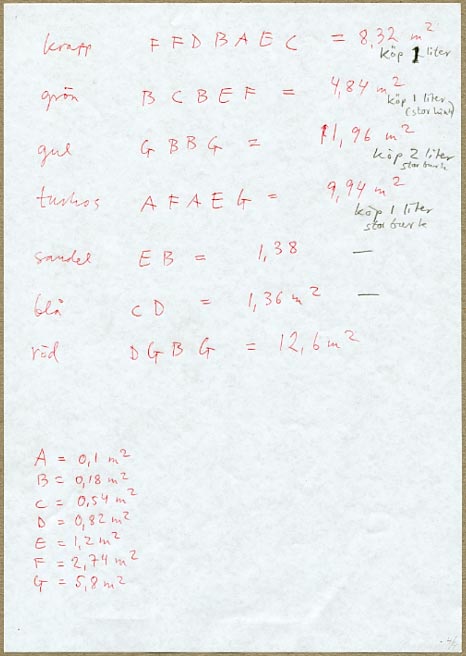 krapp FFDBAEC = 8,32 m²
köp 1 liter
grön BCBEF = 4,84 m²
köp 1 liter
gul GBBG = 11,96 m²
köp 2 liter
storburk
turkos AFAEG = 9,94 m²
köp 1 liter
storburk
sandel EB = 1,38 —
blå CD = 1,36 m² —
röd DGBG = 12,6 m²
A = 0,1 m²
B = 0,18 m²
C = 0,54 m²
D = 0,82 m²
E = 1,2 m²
F = 2,74 m²
G = 5,8 m²